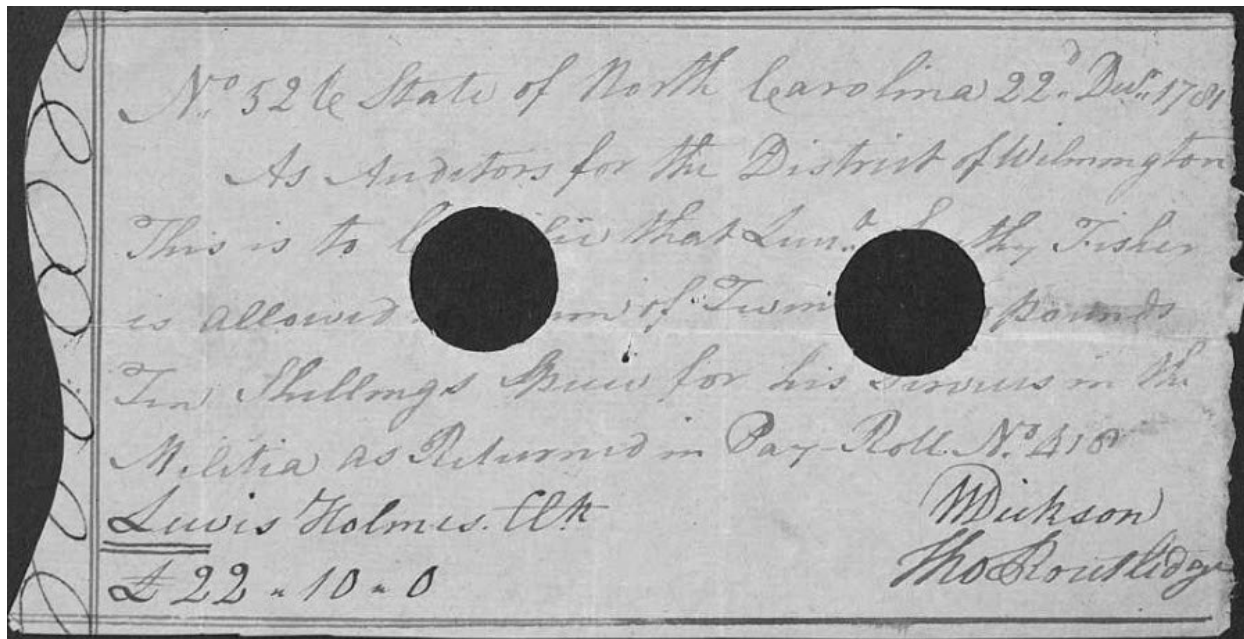 No. 5266 State of North Carolina 22d. Decr. 1781
As Auditors for the District of Wilmington
This is to that Lieut. Fisher
is allowed of pounds
Ten Shillings Specie for his Services in the
Militia as Returned in Pay-Roll. No. 418
Lewis Holmes. Clk
WDickson
Tho Routledge
£ 22 " 10 " 0